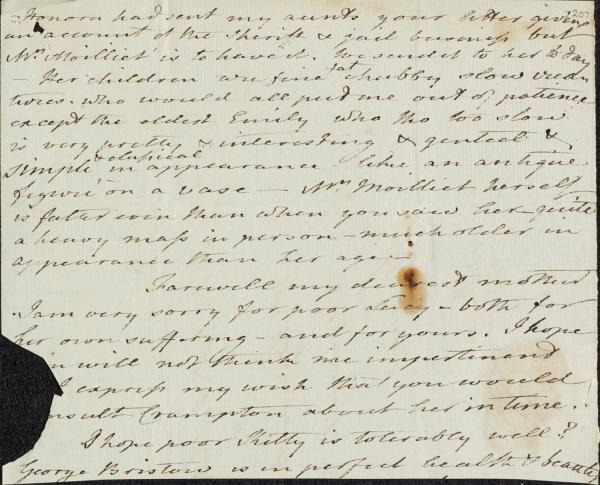 207
Honora had sent my aunts your letter giving
an account of the Sheriff & jail business but
Mrs Moilliet is to have it. We send it to her to day
— Her children are fine fat chubby slow crea
tures. who would all put me out of patience
except the eldest Emily who tho too slow
is very pretty & interesting & genteel &
simple & classical in appearance like an antique
figure on a vase — Mrs Moilliet herself
is fatter even than when you saw her – quite
a heavy mass in person – much older in
appearance than her age —
Farewell my dearest mother
I am very sorry for poor Lucy – both for
her own suffering – and for yours. I hope
will not think me impertinent
I express my wish that you would
nsult Crampton about her in time.
I hope poor Kitty is tolerably well?
George Bristow is in perfect health & beauty